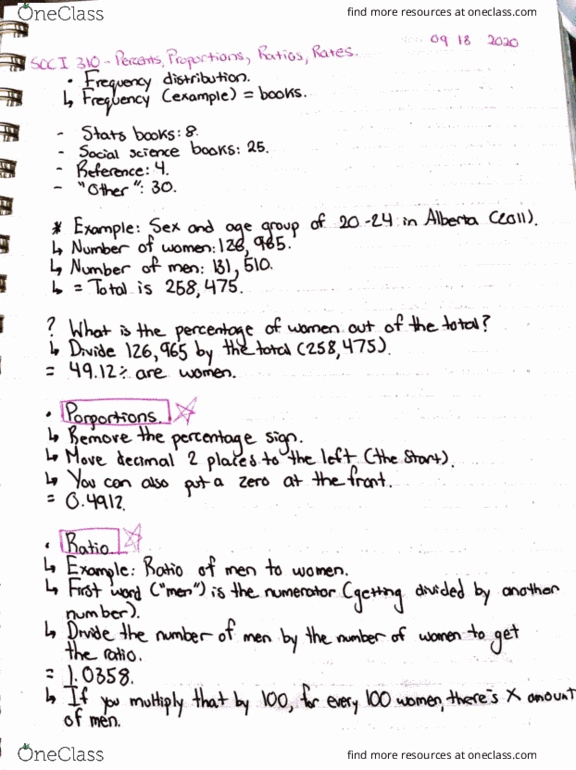 OneClass
find more resources at oneclass.com
09 18 2020
SOCI 310 - Percents, Proportions, Ratios, Rates.
• Frequency distribution.
↳ Frequency (example) = books.
- Stats books: 8.
- Social science books: 25.
- Reference: 4.
- "Other": 30.
* Example: Sex and age group of 20-24 in Alberta (2011).
↳ Number of women: 126,965.
↳ Number of men: 131,510.
↳ = Total is 258,475.
? What is the percentage of women out of the total?
↳ Divide 126,965 by the total (258,475).
= 49.12% are women.
• Porportions.
↳ Remove the percentage sign.
↳ Move decimal 2 places to the left (the start).
↳ You can also put a zero at the front.
= 0.4912.
• Ratio
↳ Example: Ratio of men to women.
↳ First word ("men") is the numerator (getting divided by another
number).
↳ Divide the number of men by the number of women to get
the ratio.
= 1.0358.
↳ If you multiply that by 100, for every 100 women, there's X amount
of men.
OneClass
find more resources at oneclass.com